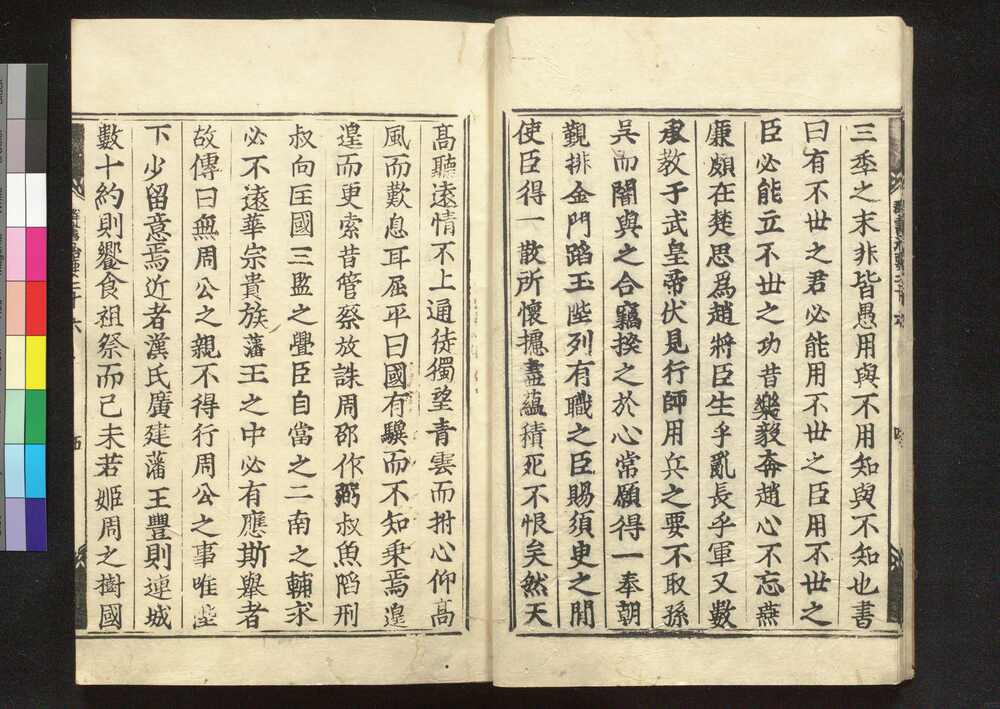 三季之末非皆愚用與不用知與不知也書
曰有不世之君必能用不世之臣用不世之
臣必能立不世之功昔樂毅奔趙心不忘燕
廉頗在楚思爲趙將臣生乎亂長乎軍又數
承教于武皇帝伏見行師用兵之要不取孫
吳而闇與之合竊揆之於心常願得一奉朝
覲排金門蹈玉陛列有職之臣賜須臾之間
使臣得一散所懷攄盡蘊積死不恨矣然天
高聽遠情不上通徒獨望青雲而拊心仰高
風而歎息耳屈平曰國有驥而不知乘焉遑
遑而更索昔管蔡放誅周邵作弼叔魚陷刑
叔向匡國三監之釁臣自當之二南之輔求
必不遠華宗貴族藩王之中必有應斯舉者
故傳曰無周公之親不得行周公之事唯陛
下少留意焉近者漢氏廣建藩王豐則連城
數十約則饗食祖祭而已未若姬周之樹國